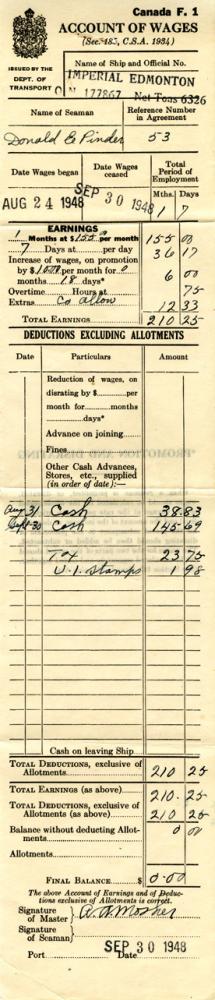 Canada F. 1
ACCOUNT OF WAGES
(Sec. 185, C.S.A. 1934)
ISSUED BY THE
DEPT. OF
TRANSPORT
Name of Ship and Official No.
IMPERIAL EDMONTON
O N 177867 Net Tons 6326
Name of Seaman
Reference Number
in Agreement
Donald E Pinder 53
Date Wages began
Date Wages
ceased
Total
Period of
Employment
Mths. Days
AUG 24 1948 SEP 30 1948 1 7
EARNINGS
1 Months at $155.00 per month 155 00
7 Days at per day 36 17
Increase of wages, on promotion
by $10.00 per month for 0
months 18 days* 6 00
Overtime Hours at 75
Extras Co allow 12 33
TOTAL EARNINGS 210 25
DEDUCTIONS EXCLUDING ALLOTMENTS
Date Particulars Amount
Reduction of wages, on
disrating by $ per
month for months
days*
Advance on joining
Fines
Other Cash Advances,
Stores, etc., supplied
(in order of date):—
Aug 31 Cash 38.83
Sept 30 Cash 145 69
Tax 23 75
U.I. Stamps 1 98
Cash on leaving Ship
TOTAL DEDUCTIONS, exclusive of
Allotments 210 25
TOTAL EARNINGS (as above) 210.25
TOTAL DEDUCTIONS, exclusive of
Allotments (as above) 210 25
Balance without deducting Allot-
ments 0 00
Allotments
FINAL BALANCE $ 0.00
The above Account of Earnings and of Deduc-
tions exclusive of Allotments is correct.
Signature
of Master A. A. Mosher
Signature
of Seaman
SEP 30 1948
Port Date